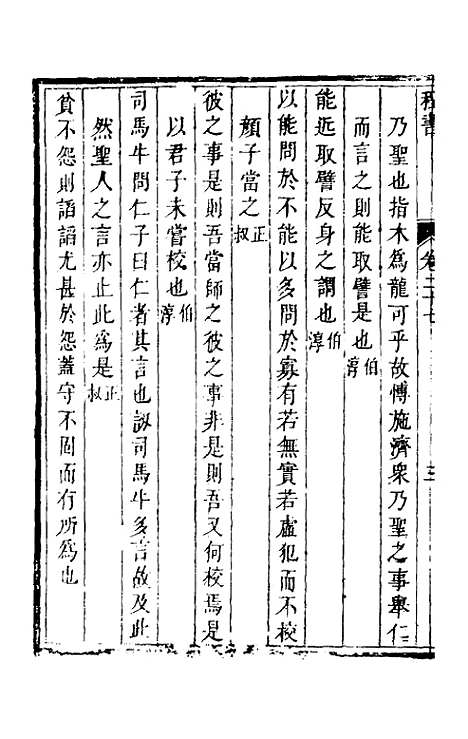 程書
卷二十七
三
乃聖也指木爲龍可乎故博施濟衆乃聖之事舉仁
而言之則能取譬是也伯淳
能近取譬反身之謂也伯淳
以能問於不能以多問於寡有若無實若虛犯而不校
顏子當之正叔
彼之事是則吾當師之彼之事非是則吾又何校焉是
以君子未嘗校也伯淳
司馬牛問仁子曰仁者其言也訒司馬牛多言故及此
然聖人之言亦止此爲是正叔
貧不怨則諂諂尤甚於怨蓋守不固而有所爲也